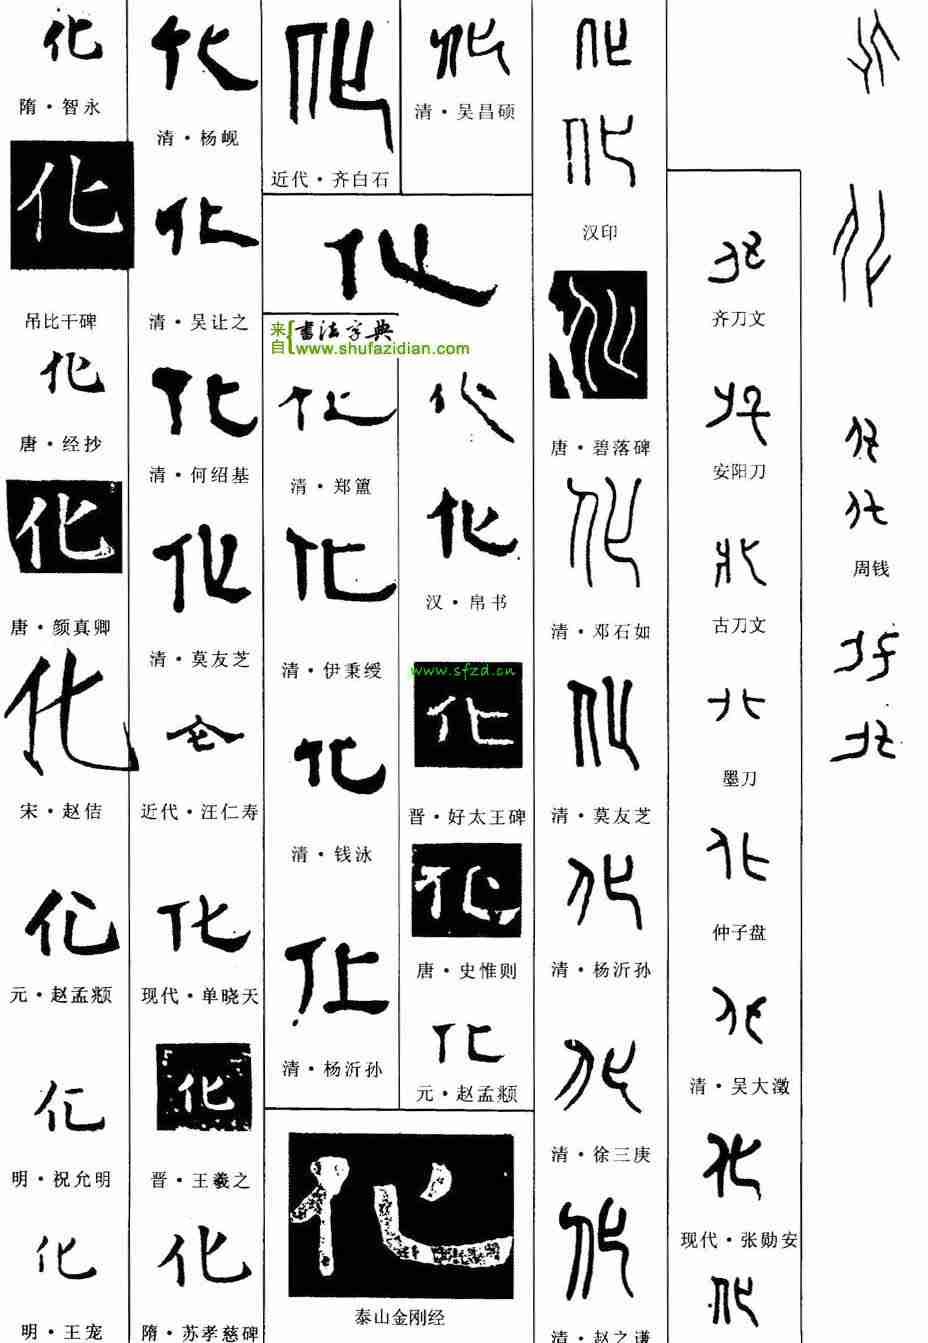 化
隋·智永
化
吊比干碑
化
唐·经抄
化
唐·颜真卿
化
宋·赵佶
化
元·赵孟頫
化
明·祝允明
化
明·王宠
化
清·杨岘
化
清·吴让之
化
清·何绍基
化
清·莫友芝
化
近代·汪仁寿
化
现代·单晓天
化
晋·王羲之
化
隋·苏孝慈碑
化
近代·齐白石
化
来自{书法字典
www.shufazidian.com
化
清·郑簠
化
清·伊秉绶
化
清·钱泳
化
清·杨沂孙
化
泰山金刚经
化
清·吴昌硕
化
汉·帛书
www.sfzd.cn
化
晋·好太王碑
化
唐·史惟则
化
元·赵孟頫
化
化
汉印
化
唐·碧落碑
化
清·邓石如
化
清·莫友芝
化
清·杨沂孙
化
清·徐三庚
化
清·赵之谦
化
齐刀文
化
安阳刀
化
古刀文
化
墨刀
化
仲子盘
化
清·吴大澂
化
现代·张勋安
化
化
化
化
化
周钱
化
化